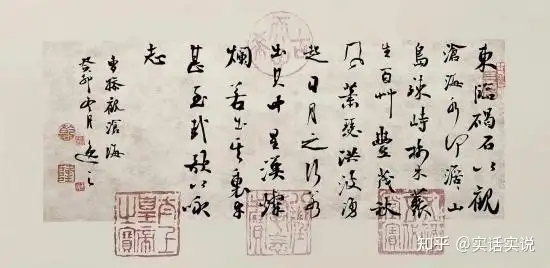 東臨碣石以觀
滄海水何澹山
島竦峙樹木叢
生百艸豐茂秋
風蕭瑟洪波湧
起日月之行若
出其中星漢燦
爛若出其裏幸
甚至哉歌以詠
志
曹操觀滄海
癸卯月
太上皇帝之寶
知乎 @实话实说